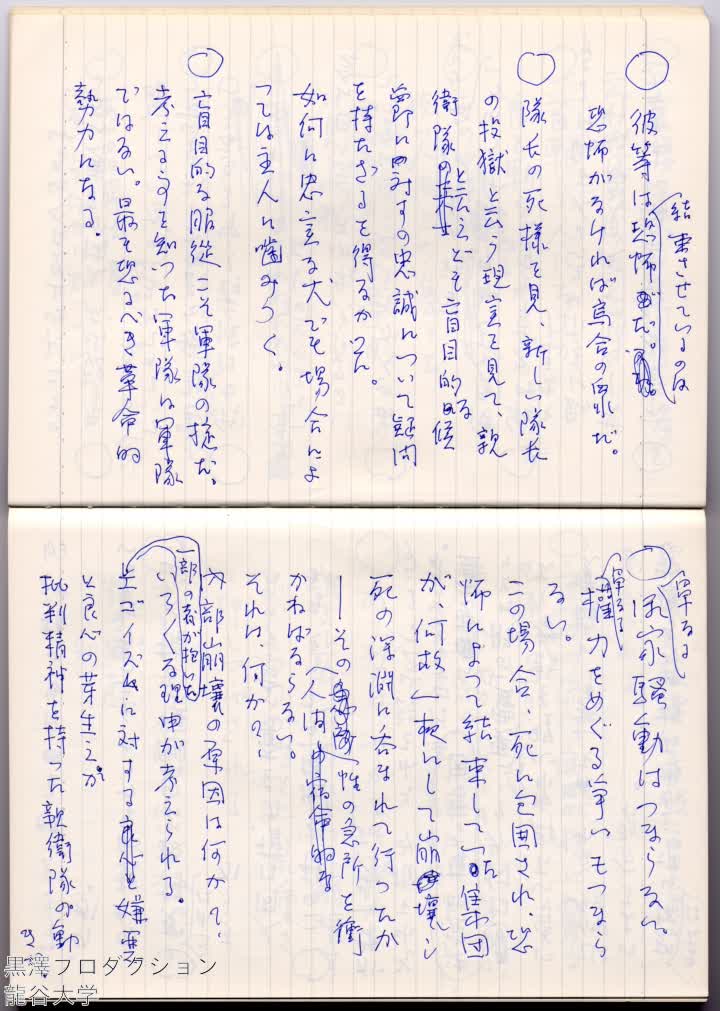 ○ 彼等を結束させているのは恐怖だ。
恐怖がなければ烏合の衆だ。
○ 隊長の死様を見、新しい隊長
の投獄と云う現実を見て、親
衛隊と云えども盲目的な
に対する忠誠について疑問
を持たざるを得なかった。
如何に忠実な犬でも場合によ
っては主人に噛みつく。
○ 盲目的な服従こそ軍隊の掟だ。
考える事を知った軍隊は軍隊
ではない。最も恐るべき革命的
勢力になる。
○ 単なるお家騒動はつまらない。
単なる権力をめぐる争いもつまら
ない。
この場合、死に包囲され、恐
怖によって結束していた集団
が、何故一夜にして崩壊し
死の深淵に呑まれて行ったか
―その人間性の急所を衝
かねばならない。
それは、何か?
内部崩壊の原因は何か?
いろくな理由が考えられる。
一部の者が抱いた
エゴイズムに対する嫌悪
と良心の芽生えか
批判精神を持った親衛隊の動
き
黒澤プロダクション
龍谷大学